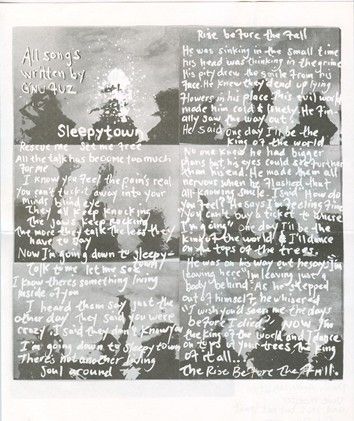 All songs
written by
GNU FUZ
Sleepytown
Rescue me Set me free
All the talk has become too much
for me
I know you feel the pain's real
You can't tuck it away into your
minds blind eye
They all keep knocking
The Jaws keep rocking
The more they talk the less they
have to say
Now I'm going down to sleepy-
town
Talk to me let me
I know there's something living
inside of you
I heard them say just the
other day they said you were
crazy I said they don't know you
I'm going down to Sleepytown
There's not another living
soul around
Rise before the Fall
He was sinking in the small time
his head was thinking in the grime
His pity drew the smile from his
face. He knew they'd end up lying
flowers in his place. This evil world
made him cold & lonely. He fin-
ally saw the way out!
He said one day I'll be the
king of the world
No one knew he had bigger
plans but his eyes could see further
than his end. He made them all
nervous when he flashed that
all knowing smile I said How do
you feel? He says I'm feeling fine
You can't buy a ticket to where
I'm going" one day I'll be the
king of the world & I'll dance
on the tops of the trees.
He was on his way out the door "I'm
leaving here I'm leaving just a
body behind". As he stepped
out of himself he whispered
"I wish you'd seen me the days
before I died" now I'm
the king of the world and I dance
on the tops of your trees, the king
of it all...
The Rise Before the Fall.